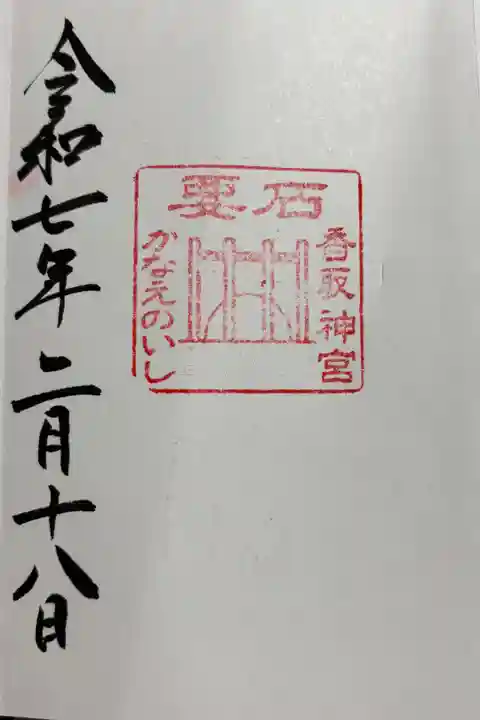 要石
香取神宮
かなえのいし
令和七年二月十八日